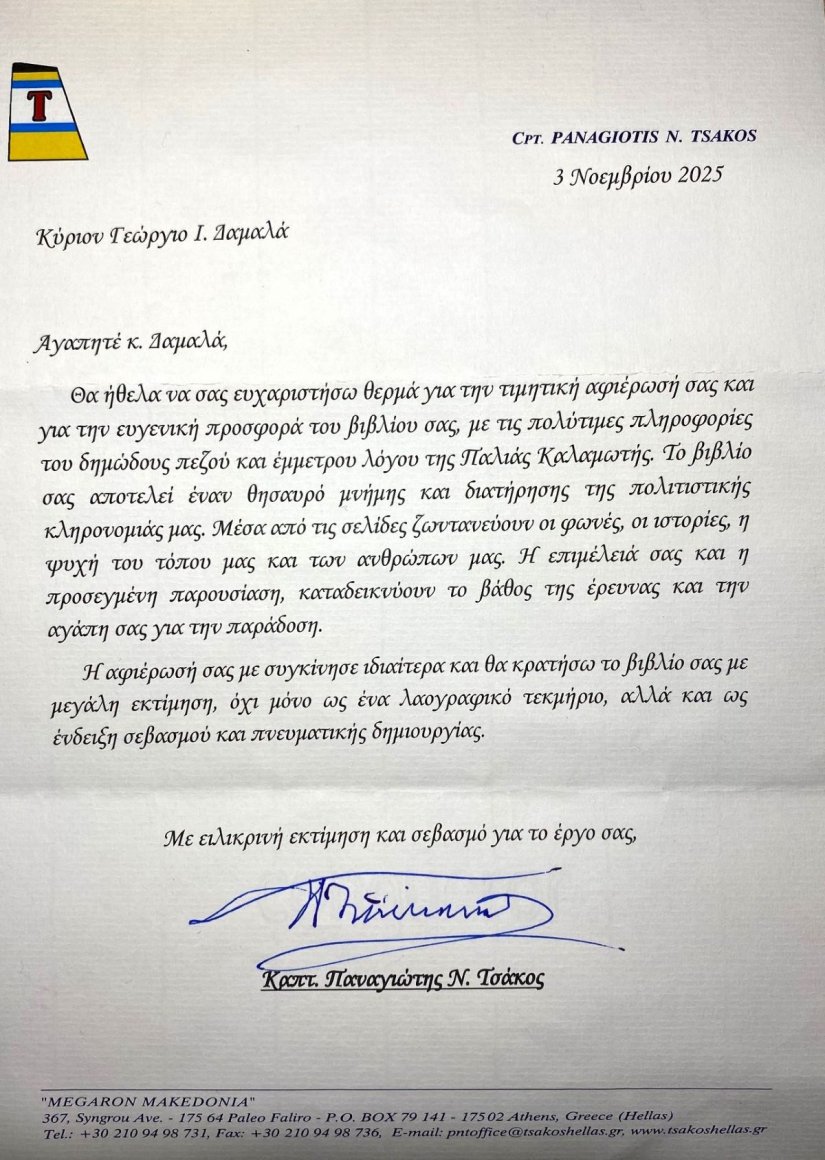 T
CPT. PANAGIOTIS N. TSAKOS
3 Νοεμβρίου 2025
Κύριον Γεώργιο Ι. Δαμαλά
Αγαπητέ κ. Δαμαλά,
Θα ήθελα να σας ευχαριστήσω θερμά για την τιμητική αφιέρωσή σας και
για την ευγενική προσφορά του βιβλίου σας, με τις πολύτιμες πληροφορίες
του δημώδους πεζού και έμμετρου λόγου της Παλιάς Καλαμωτής. Το βιβλίο
σας αποτελεί έναν θησαυρό μνήμης και διατήρησης της πολιτιστικής
κληρονομιάς μας. Μέσα από τις σελίδες ζωντανεύουν οι φωνές, οι ιστορίες, η
ψυχή του τόπου μας και των ανθρώπων μας. Η επιμέλειά σας και η
προσεγμένη παρουσίαση, καταδεικνύουν το βάθος της έρευνας και την
αγάπη σας για την παράδοση.
Η αφιέρωσή σας με συγκίνησε ιδιαίτερα και θα κρατήσω το βιβλίο σας με
μεγάλη εκτίμηση, όχι μόνο ως ένα λαογραφικό τεκμήριο, αλλά και ως
ένδειξη σεβασμού και πνευματικής δημιουργίας.
Με ειλικρινή εκτίμηση και σεβασμό για το έργο σας,
Καπτ. Παναγιώτης Ν. Τσάκος
"MEGARON MAKEDONIA"
367, Syngrou Ave. - 175 64 Paleo Faliro - P.O. BOX 79 141 - 17502 Athens, Greece (Hellas)
Tel.: +30 210 94 98 731, Fax: +30 210 94 98 736, E-mail: pntoffice@tsakoshellas.gr, www.tsakoshellas.gr